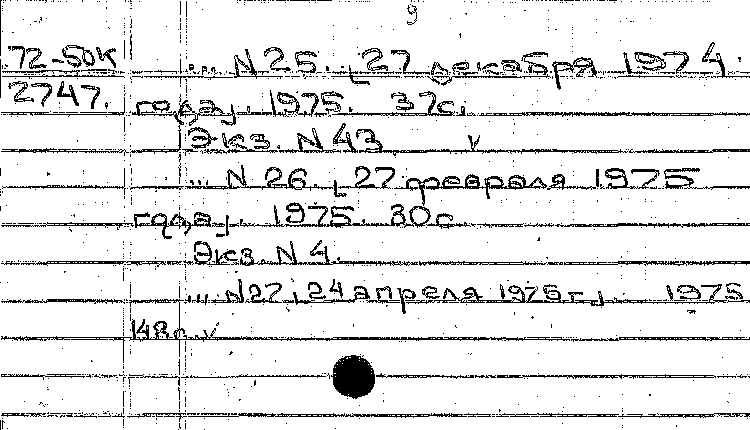 9
72-50к ... N 25. [27 декабря 1974
2747. года]. 1975. 37с.
Экз. N 43 v
... N 26. [27 февраля 1975
года]. 1975. 30с
Экз. N 4.
... N27 [24 апреля 1975 г.] 1975
v